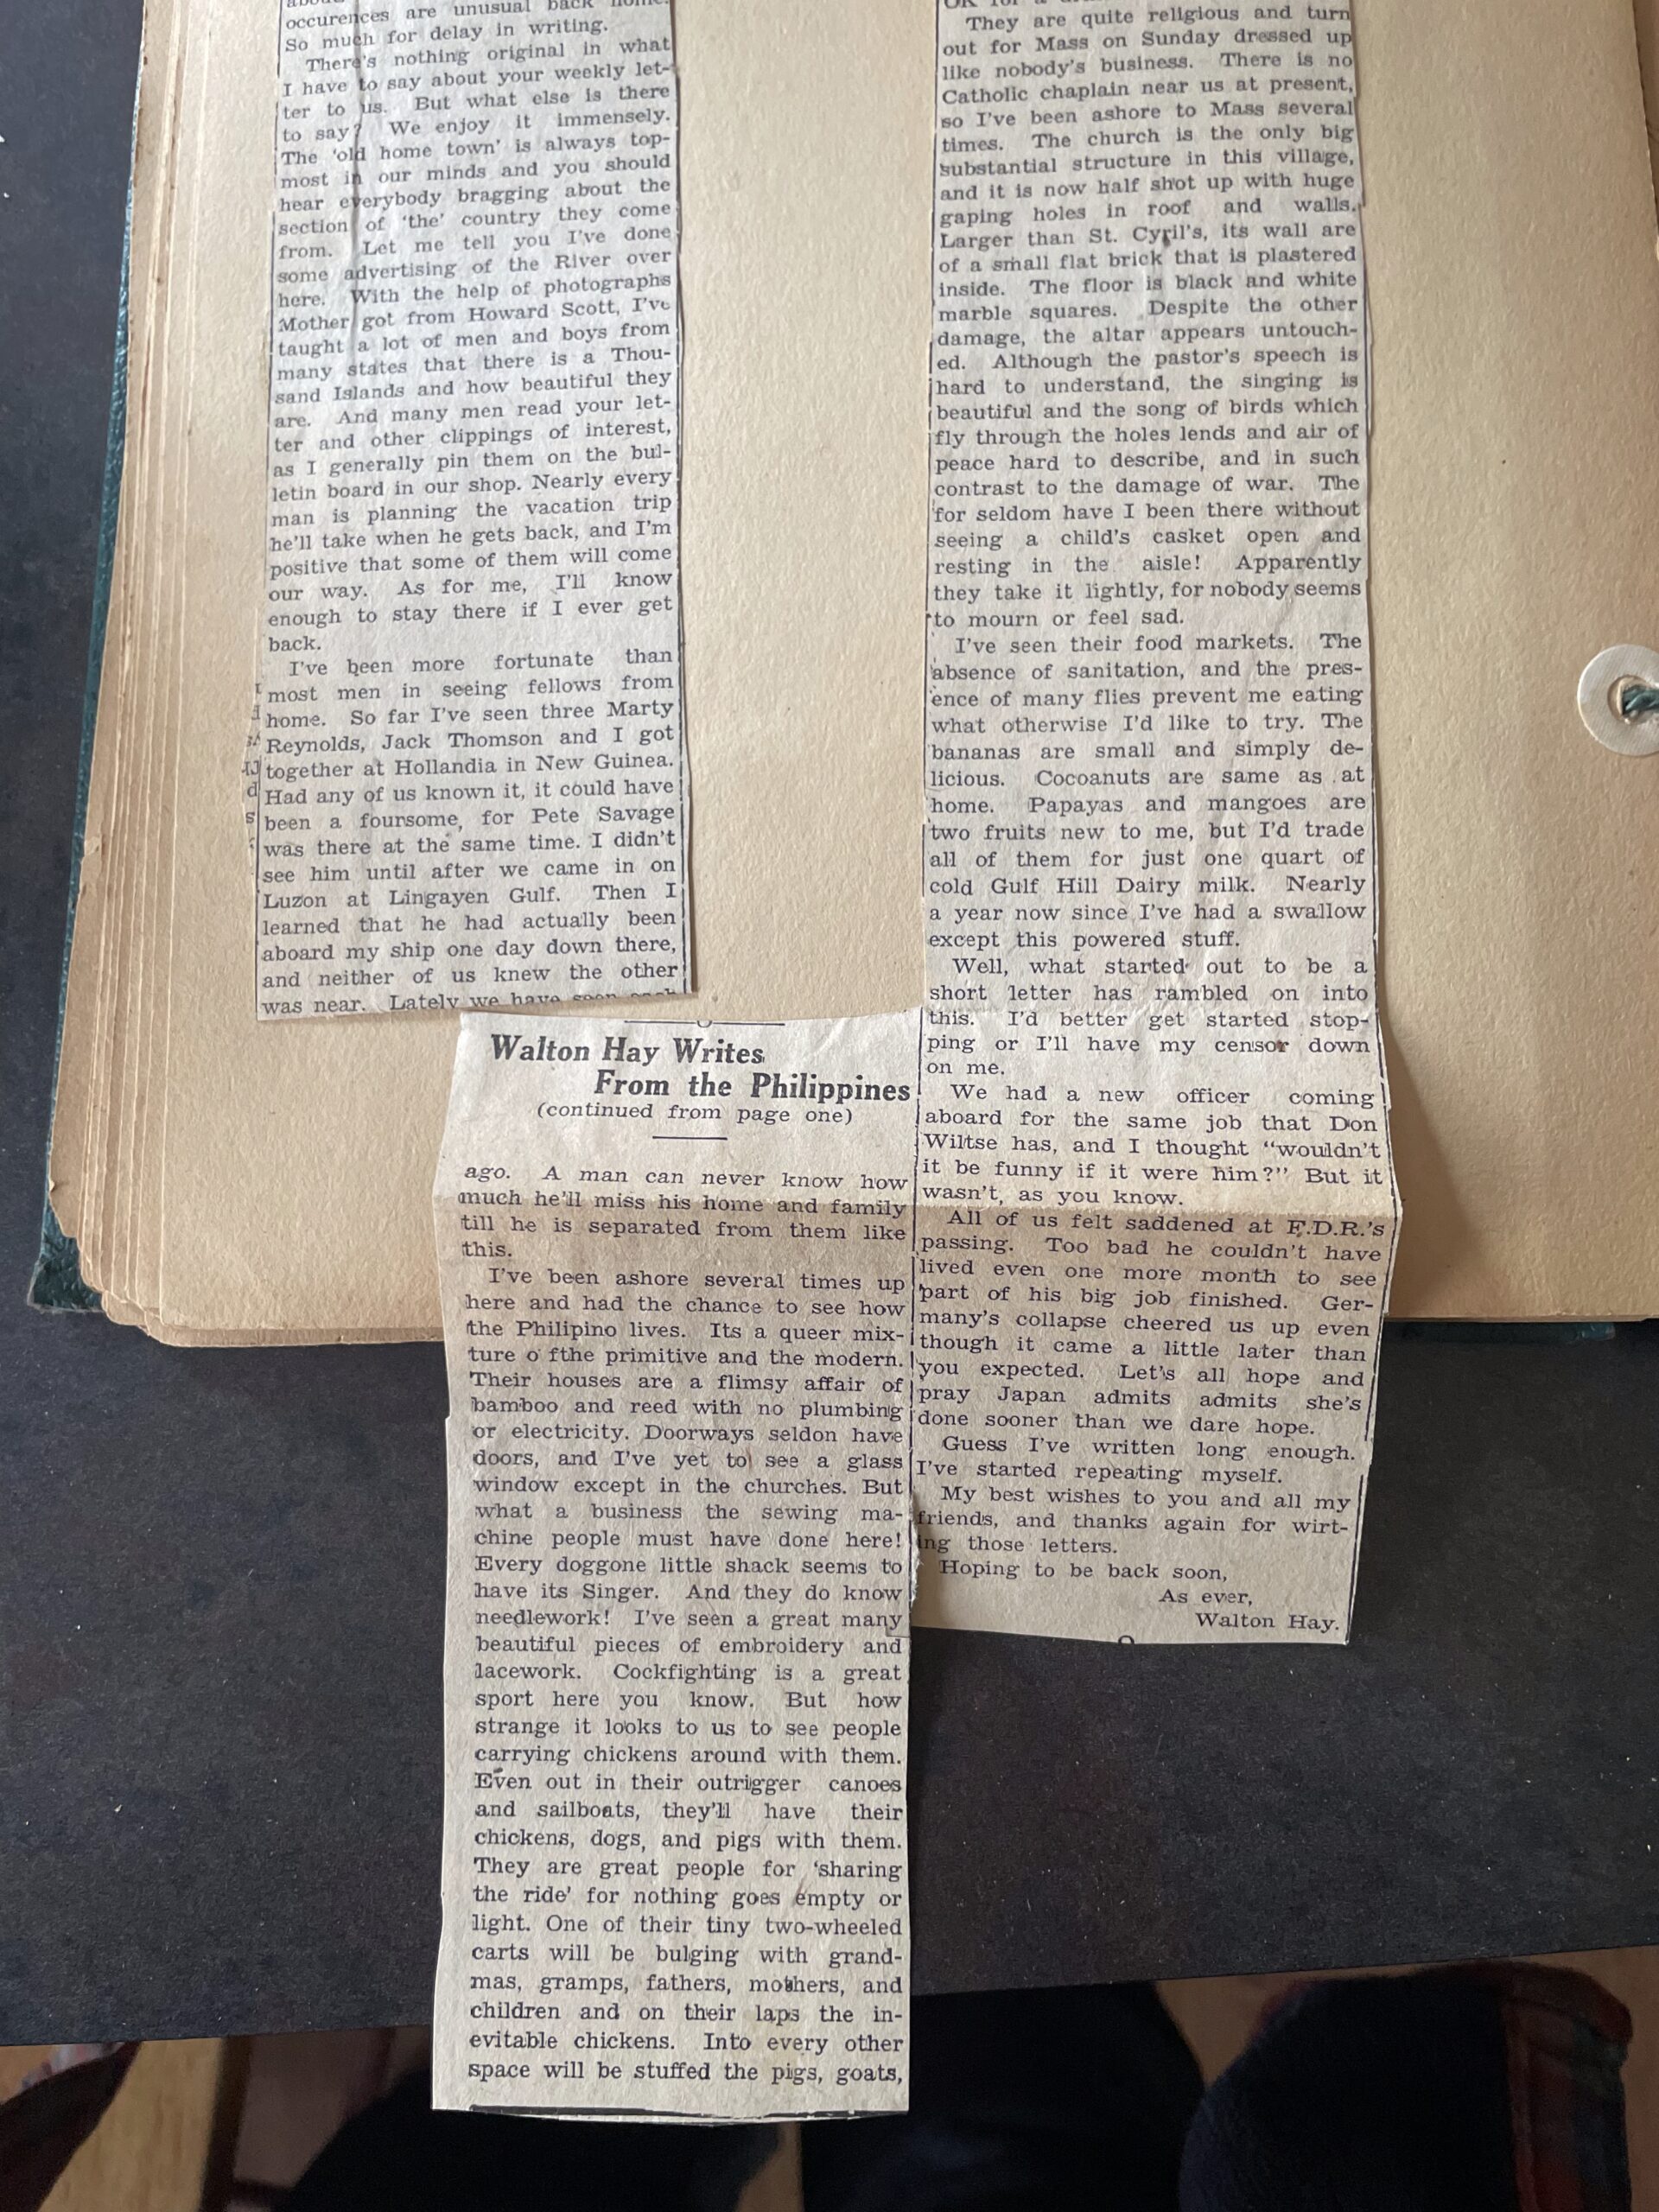 occurences are unusual back home.
So much for delay in writing.
There's nothing original in what
I have to say about your weekly let-
ter to us. But what else is there
to say? We enjoy it immensely.
The 'old home town' is always top-
most in our minds and you should
hear everybody bragging about the
section of 'the' country they come
from. Let me tell you I've done
some advertising of the River over
here. With the help of photographs
Mother got from Howard Scott, I've
taught a lot of men and boys from
many states that there is a Thou-
sand Islands and how beautiful they
are. And many men read your let-
ter and other clippings of interest,
as I generally pin them on the bul-
letin board in our shop. Nearly every
man is planning the vacation trip
he'll take when he gets back, and I'm
positive that some of them will come
our way. As for me, I'll know
enough to stay there if I ever get
back.
I've been more fortunate than
most men in seeing fellows from
home. So far I've seen three Marty
Reynolds, Jack Thomson and I got
together at Hollandia in New Guinea.
Had any of us known it, it could have
been a foursome, for Pete Savage
was there at the same time. I didn't
see him until after we came in on
Luzon at Lingayen Gulf. Then I
learned that he had actually been
aboard my ship one day down there,
and neither of us knew the other
was near. Lately we have seen each
Walton Hay Writes
From the Philippines
(continued from page one)
ago. A man can never know how
much he'll miss his home and family
till he is separated from them like
this.
I've been ashore several times up
here and had the chance to see how
the Philipino lives. Its a queer mix-
ture o fthe primitive and the modern.
Their houses are a flimsy affair of
bamboo and reed with no plumbing
or electricity. Doorways seldon have
doors, and I've yet to see a glass
window except in the churches. But
what a business the sewing ma-
chine people must have done here!
Every doggone little shack seems to
have its Singer. And they do know
needlework! I've seen a great many
beautiful pieces of embroidery and
lacework. Cockfighting is a great
sport here you know. But how
strange it looks to us to see people
carrying chickens around with them.
Even out in their outrigger canoes
and sailboats, they'll have their
chickens, dogs, and pigs with them.
They are great people for 'sharing
the ride' for nothing goes empty or
light. One of their tiny two-wheeled
carts will be bulging with grand-
mas, gramps, fathers, mothers, and
children and on their laps the in-
evitable chickens. Into every other
space will be stuffed the pigs, goats,
They are quite religious and turn
out for Mass on Sunday dressed up
like nobody's business. There is no
Catholic chaplain near us at present,
so I've been ashore to Mass several
times. The church is the only big
substantial structure in this village,
and it is now half shot up with huge
gaping holes in roof and walls.
Larger than St. Cyril's, its wall are
of a small flat brick that is plastered
inside. The floor is black and white
marble squares. Despite the other
damage, the altar appears untouch-
ed. Although the pastor's speech is
hard to understand, the singing is
beautiful and the song of birds which
fly through the holes lends and air of
peace hard to describe, and in such
contrast to the damage of war. The
for seldom have I been there without
seeing a child's casket open and
resting in the aisle! Apparently
they take it lightly, for nobody seems
to mourn or feel sad.
I've seen their food markets. The
absence of sanitation, and the pres-
ence of many flies prevent me eating
what otherwise I'd like to try. The
bananas are small and simply de-
licious. Cocoanuts are same as at
home. Papayas and mangoes are
two fruits new to me, but I'd trade
all of them for just one quart of
cold Gulf Hill Dairy milk. Nearly
a year now since I've had a swallow
except this powered stuff.
Well, what started out to be a
short letter has rambled on into
this. I'd better get started stop-
ping or I'll have my censor down
on me.
We had a new officer coming
aboard for the same job that Don
Wiltse has, and I thought "wouldn't
it be funny if it were him?" But it
wasn't, as you know.
All of us felt saddened at F.D.R.'s
passing. Too bad he couldn't have
lived even one more month to see
part of his big job finished. Ger-
many's collapse cheered us up even
though it came a little later than
you expected. Let's all hope and
pray Japan admits admits she's
done sooner than we dare hope.
Guess I've written long enough.
I've started repeating myself.
My best wishes to you and all my
friends, and thanks again for wirt-
ing those letters.
Hoping to be back soon,
As ever,
Walton Hay.